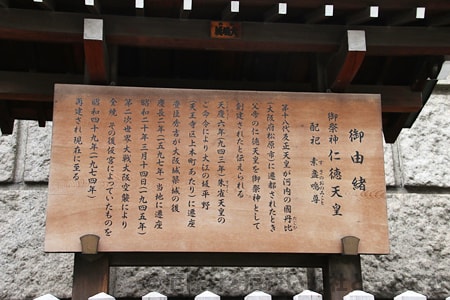 御由緒
御祭神 仁徳天皇
配祀 素盞嗚尊
第十八代反正天皇が河内の国丹比
(大阪府松原市)に遷都されたとき
父帝の仁徳天皇を御祭神として
創建されたと伝えられる
天慶六年(九四三年)朱雀天皇の
ご命令により大江の坂平野
(天王寺区上本町あたり)に遷座
豊臣秀吉が大阪城築城の後
慶長二年(一五九七年)当地に遷座
昭和二十年三月十四日(一九四五年)
第二次世界大戦大阪空襲により
全焼 その後仮宮になっていたものを
昭和四十九年(一九七四年)
再建され現在に至る